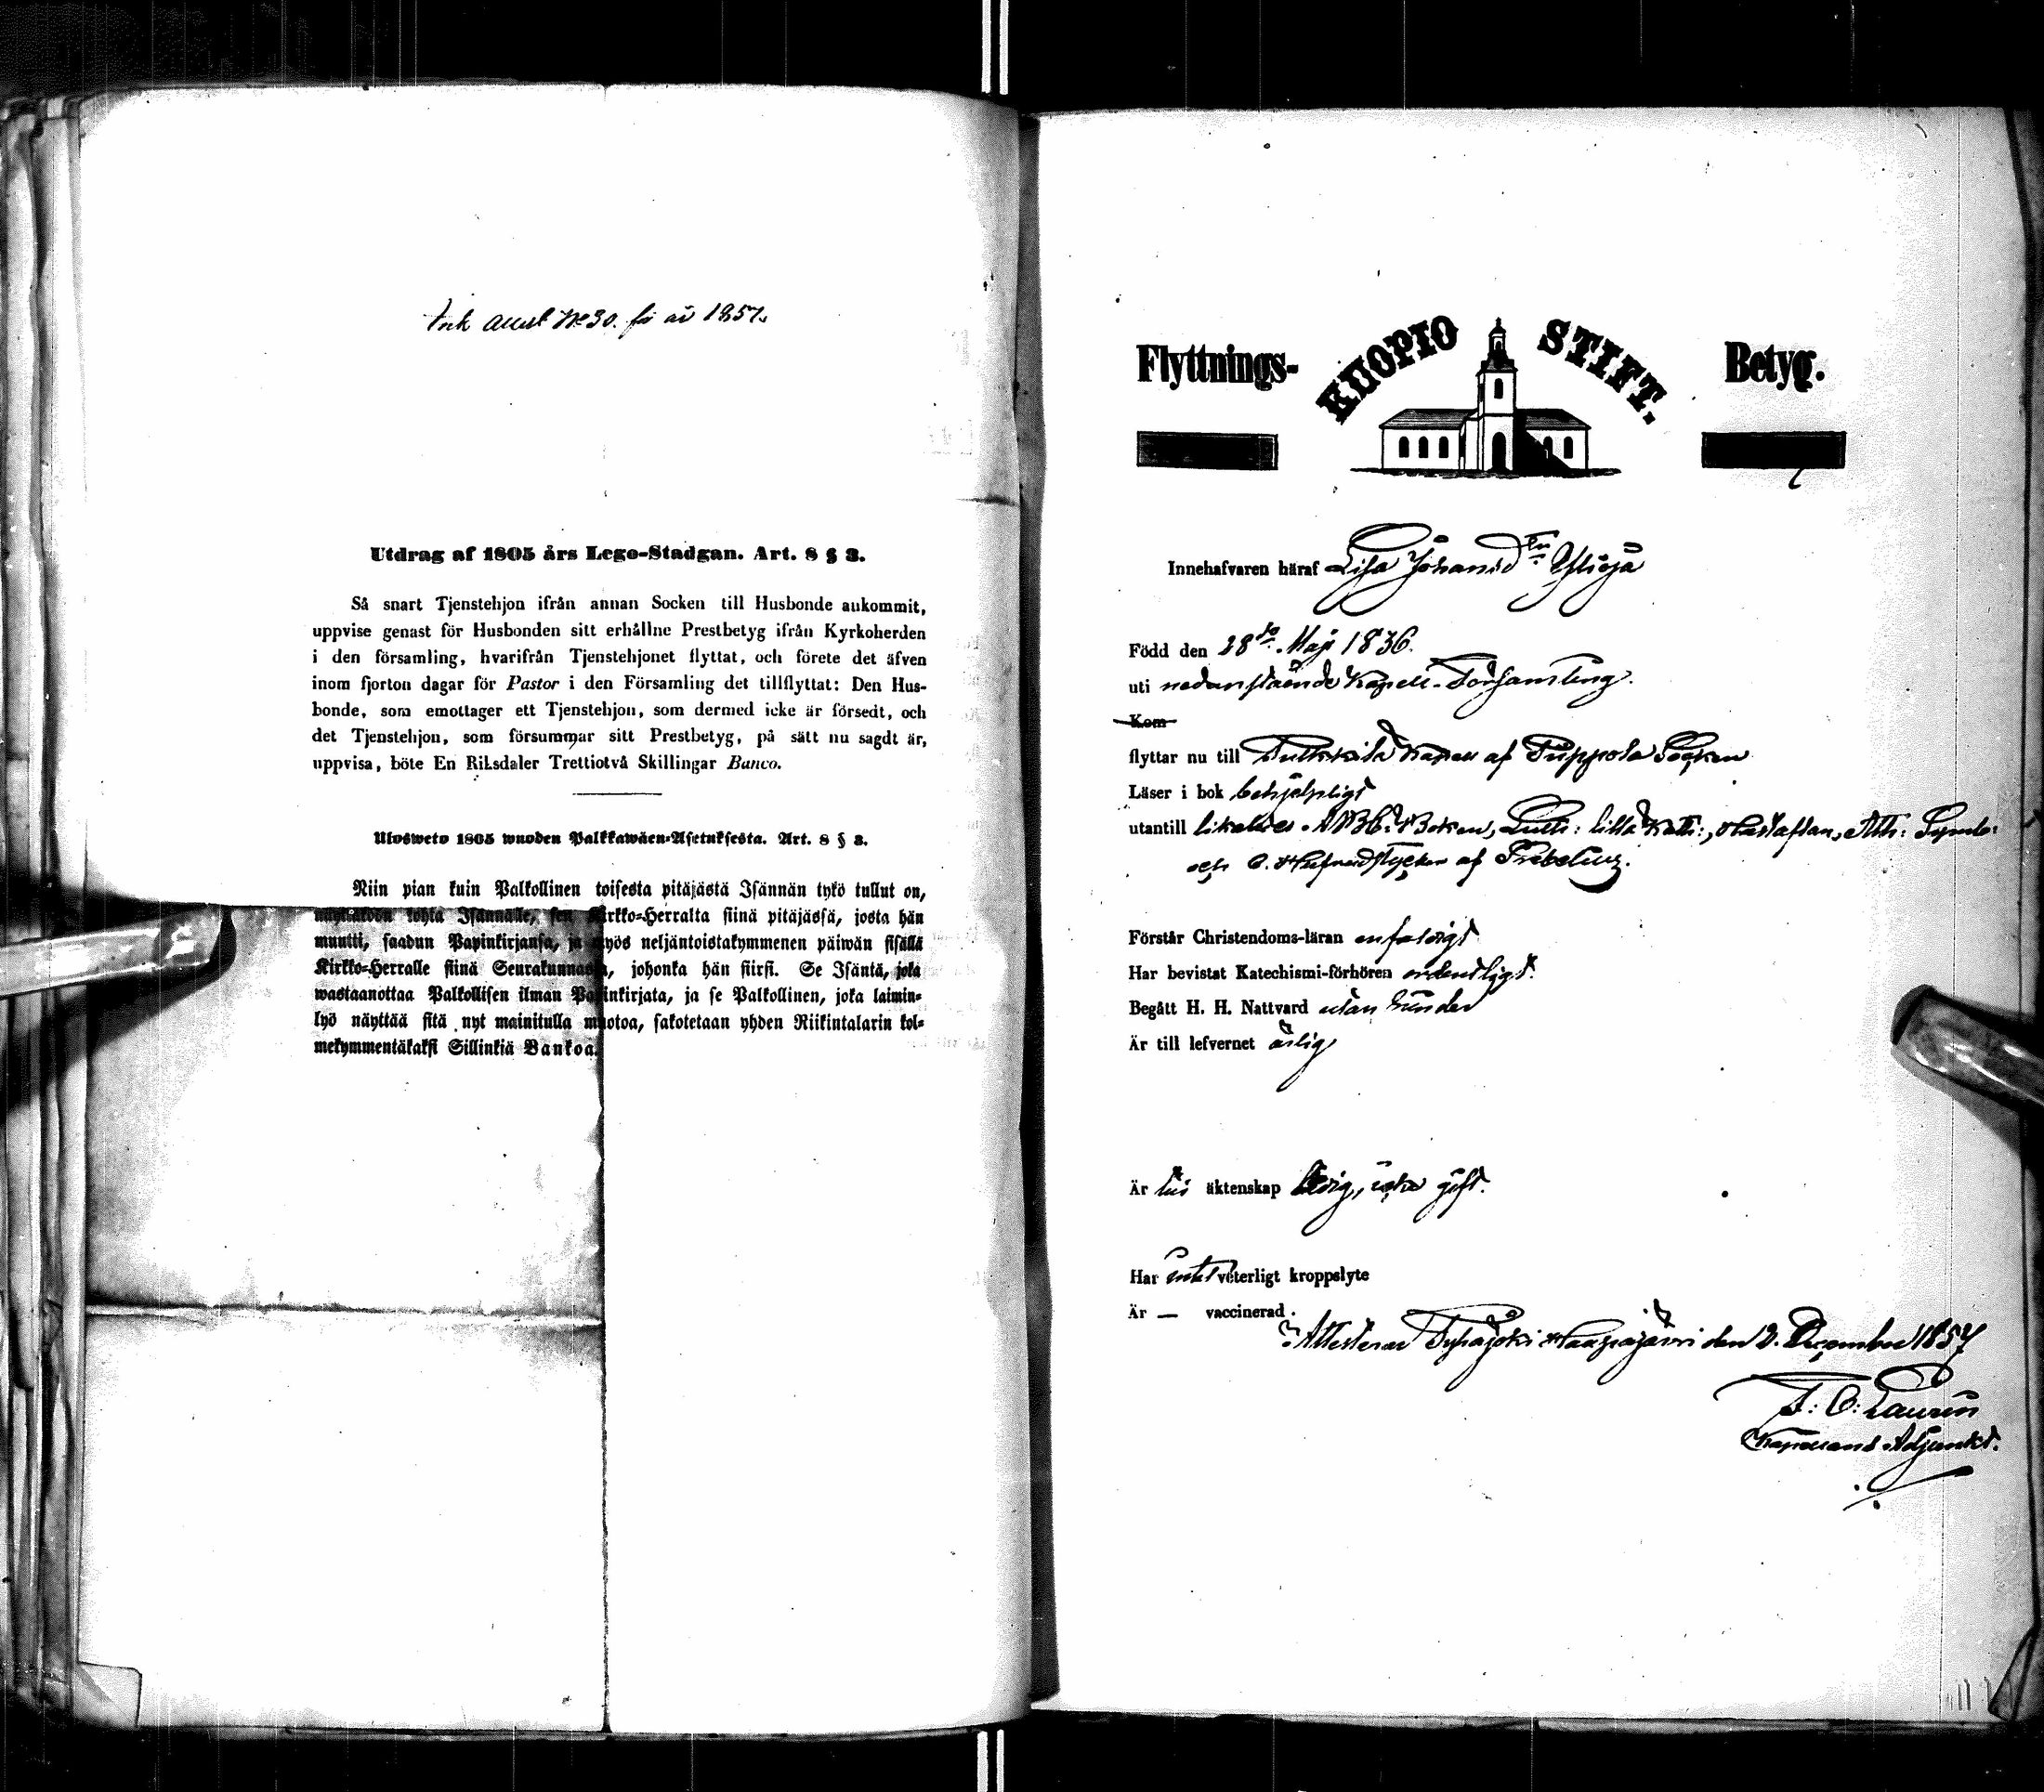 Ink attest No 30. för år 1857.
Utdrag af 1805 års Lego-Stadgan. Art. 8 § 3.
Så snart Tjenstehjon ifrån annan Socken till Husbonde ankommit,
uppvise genast för Husbonden sitt erhållne Prestbetyg ifrån Kyrkoherden
i den församling, hvarifrån Tjenstehjonet flyttat, och förete det äfven
inom fjorton dagar för Pastor i den Församling det tillflyttat: Den Hus-
bonde, som emottager ett Tjenstehjon, som dermed icke är försedt, och
det Tjenstehjon, som försummar sitt Prestbetyg, på sätt nu sagdt är,
uppvisa, böte En Riksdaler Trettiotvå Skillingar Banco.
Ulosweto 1805 wuoden Palkkawäen-Asetuksesta. Art. 8 § 3.
Niin pian kuin Palkollinen toisesta pitäjästä Isännän tykö tullut on,
näyttäköön kohta Isännälle, sen Kirkko-Herralta siinä pitäjässä, josta hän
muutti, saadun Papinkirjansa, ja myös neljäntoistakymmenen päiwän sisällä
Kirkko-Herralle siinä Seurakunnassa, johonka hän siirsi. Se Isäntä, joka
wastaanottaa Palkollisen ilman Papinkirjata, ja se Palkollinen, joka laimin-
lyö näyttää sitä nyt mainitulla muotoa, sakotetaan yhden Riikintalarin kol-
mekymmentäkaksi Sillinkiä Bankoa.
Flyttnings- KUOPIO STIFT. Betyg.
Innehafvaren häraf Lisa Johansd:tr Ylioja
Född den 28de Maji 1836.
uti nedanstående Kapell-Församling.
Kom
flyttar nu till Pulkkila Kapell af Pippola Socken
Läser i bok behjelpligt
utantill likaledes ABC-Boken, Luth: lilla Kat:, Hustaflan, Ath: Symb:
och Hufvudstycken af Srebelius.
Förstår Christendoms-läran enfaldigt
Har bevistat Katechismi-förhören ordentligt.
Begått H. H. Nattvard utan hinder
Är till lefvernet ärlig
Är till äktenskap ledig, icke gift.
Har intet veterligt kroppslyte
Är — vaccinerad.
Attesterar Pyhäjoki Haapajärvi den 2. December 1857
Laurin
Kapellans Adjunkt.